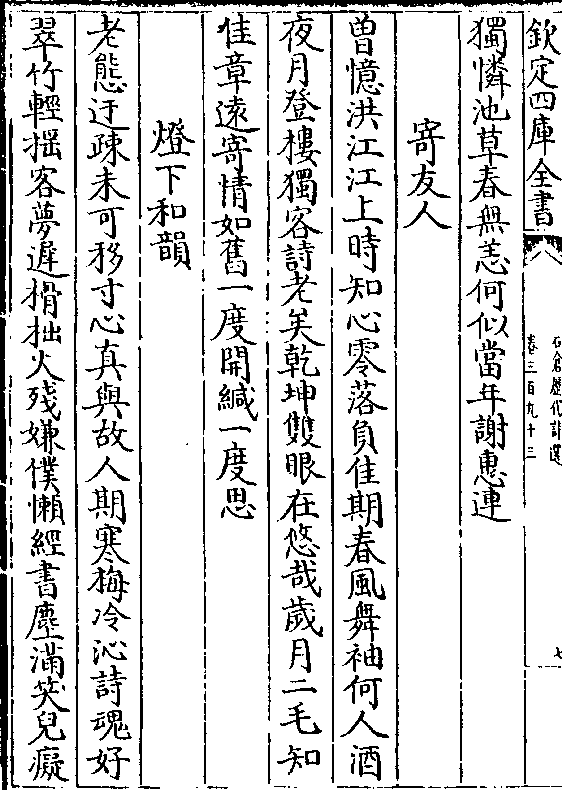 欽定四庫全書
石倉歴代詩選
卷三百九十三
七
獨憐池草春無恙何似當年謝惠連
寄友人
曽憶洪江江上時知心零落負佳期春風舞袖何人酒
夜月登樓獨客詩老矣乾坤雙眼在悠哉歲月二毛知
佳章遠寄情如舊一度開緘一度思
燈下和韻
老態迂疎未可移寸心真與故人期寒梅冷沁詩魂好
翠竹輕揺客夢遲榾柮火殘嫌僕懶經書塵滿笑兒癡